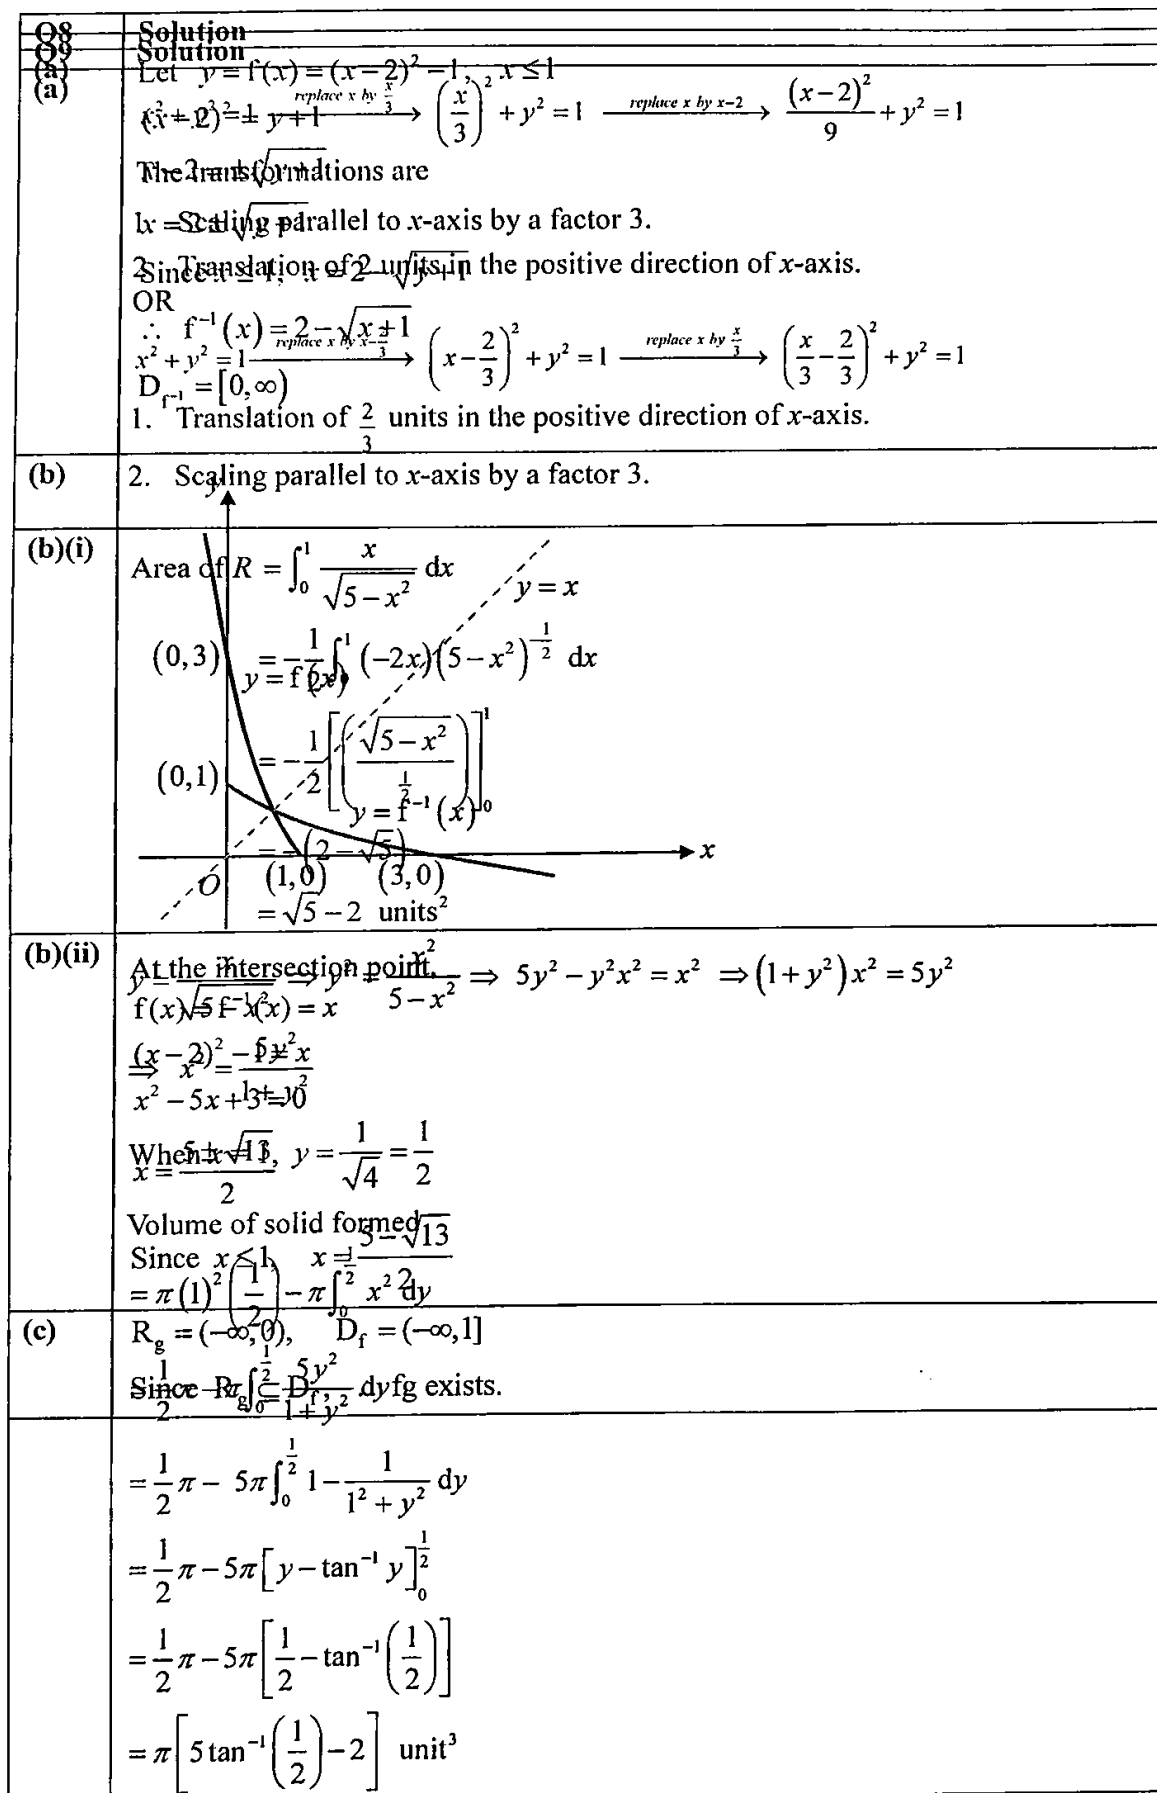 Q8 Solution
Q9 Solution
(a) Let y = f(x) = (x − 2)² − 1, x ≤ 1
(a) x² + y² = 1 —replace x by x/3→ (x/3)² + y² = 1 —replace x by x−2→ (x − 2)²/9 + y² = 1
(x − 2)² = y + 1
The transformations are
x − 2 = ±√(y + 1)
1. Scaling parallel to x-axis by a factor 3.
x = 2 ± √(y + 1)
2. Translation of 2 units in the positive direction of x-axis.
Since x ≤ 1, x = 2 − √(y + 1)
OR
∴ f⁻¹(x) = 2 − √(x + 1)
x² + y² = 1 —replace x by x−2/3→ (x − 2/3)² + y² = 1 —replace x by x/3→ (x/3 − 2/3)² + y² = 1
D_f⁻¹ = [0, ∞)
1. Translation of 2/3 units in the positive direction of x-axis.
(b) 2. Scaling parallel to x-axis by a factor 3.
y
(b)(i) Area of R = ∫₀¹ x/√(5 − x²) dx
y = x
(0,3) = −1/2 ∫₀¹ (−2x)(5 − x²)^(−1/2) dx
y = f(x)
(0,1) = −1/2 [(√(5 − x²) / (1/2))]₀¹
y = f⁻¹(x)
= −(2 − √5)
x
O (1,0) (3,0)
= √5 − 2 units²
(b)(ii) At the intersection point,
y = x/√(5 − x²) ⇒ y² = x²/(5 − x²) ⇒ 5y² − y²x² = x² ⇒ (1 + y²)x² = 5y²
f(x) = f⁻¹(x) = x
(x − 2)² − 1 = x
⇒ x² = 5y²/(1 + y²)
x² − 5x + 3 = 0
When x = 1, y = 1/√4 = 1/2
x = (5 ± √13)/2
Volume of solid formed
Since x ≤ 1, x = (5 − √13)/2
= π(1)²(1/2) − π∫₀^(1/2) x² dy
(c) R_g = (−∞, 0), D_f = (−∞, 1]
Since R_g ⊆ D_f, fg exists.
= 1/2 π − π∫₀^(1/2) 5y²/(1 + y²) dy
= 1/2 π − 5π∫₀^(1/2) 1 − 1/(1² + y²) dy
= 1/2 π − 5π[y − tan⁻¹ y]₀^(1/2)
= 1/2 π − 5π[1/2 − tan⁻¹(1/2)]
= π[5 tan⁻¹(1/2) − 2] unit³